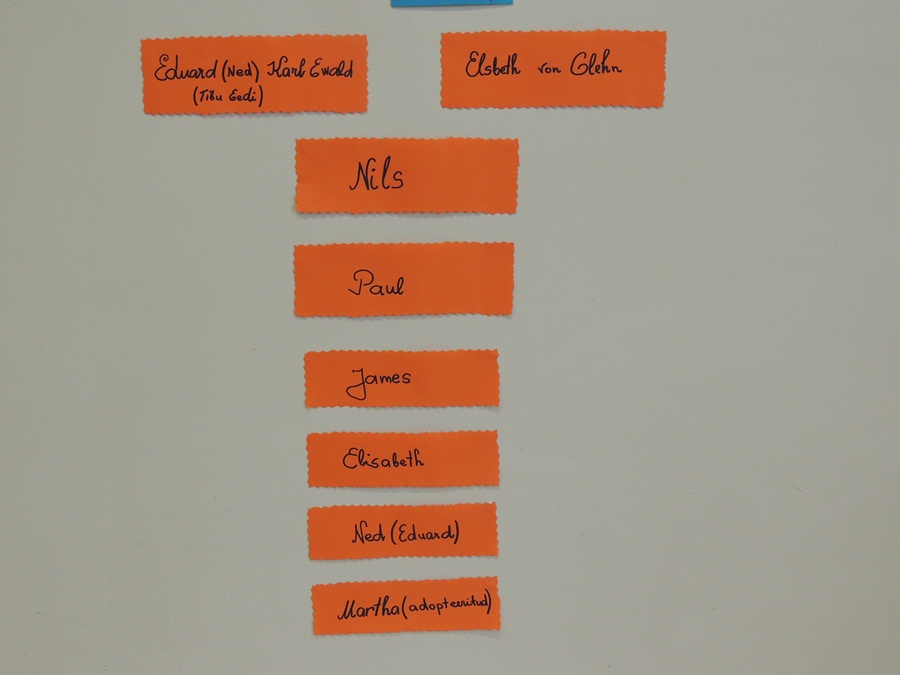 Eduard (Ned) Karl Ewald
(Tibu Eedi)
Elsbeth von Glehn
Nils
Paul
James
Elisabeth
Ned (Eduard)
Martha (adopteeritud)